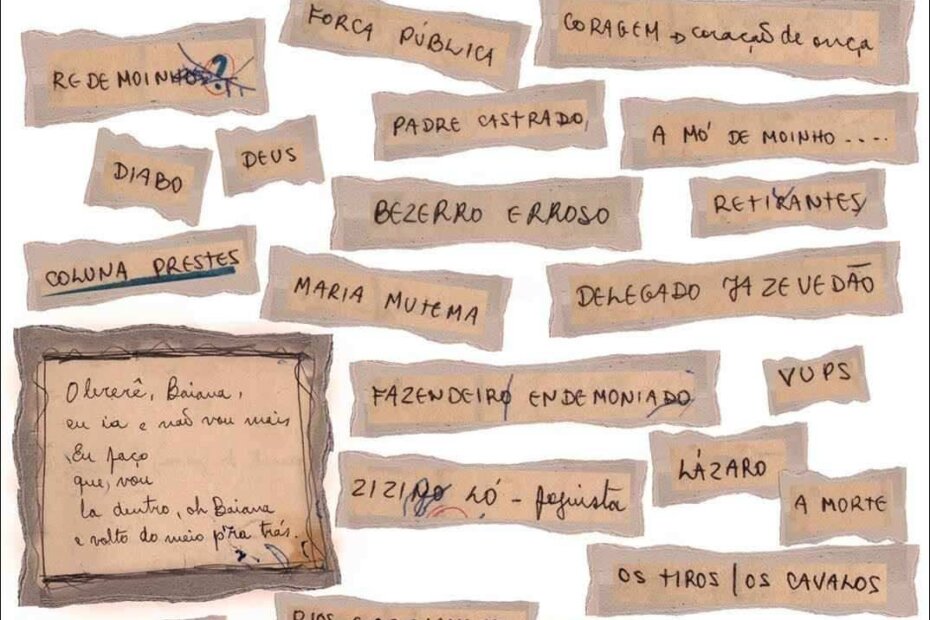 FORÇA PÚBLICA
CORAGEM → coração de onça
REDEMOINHO?
PADRE CASTRADO,
A MÓ DE MOINHO ....
DIABO
DEUS
BEZERRO ERROSO
RETIRANTES
COLUNA PRESTES
MARIA MUTEMA
DELEGADO JAZEVEDÃO
FAZENDEIRO ENDEMONIADO
VUPS
Olererê, Baiana,
eu ia e não vou mais
Eu faço
que vou
la dentro, oh Baiana
e volto do meio p'ra trás.
LÁZARO
ZIZI LÓ - foguista
A MORTE
OS TIROS / OS CAVALOS